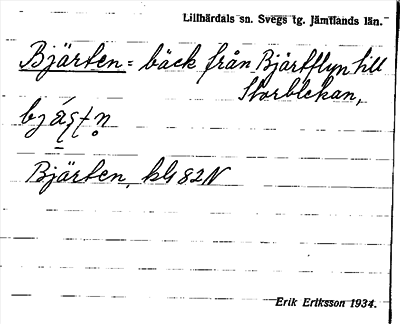 Lillhärdals sn. Svegs tg. Jämtlands län.
Bjärten = bäck från Bjärtflyn till
Storblekan,
Bjärten, kbl 82N
Erik Eriksson 1934.